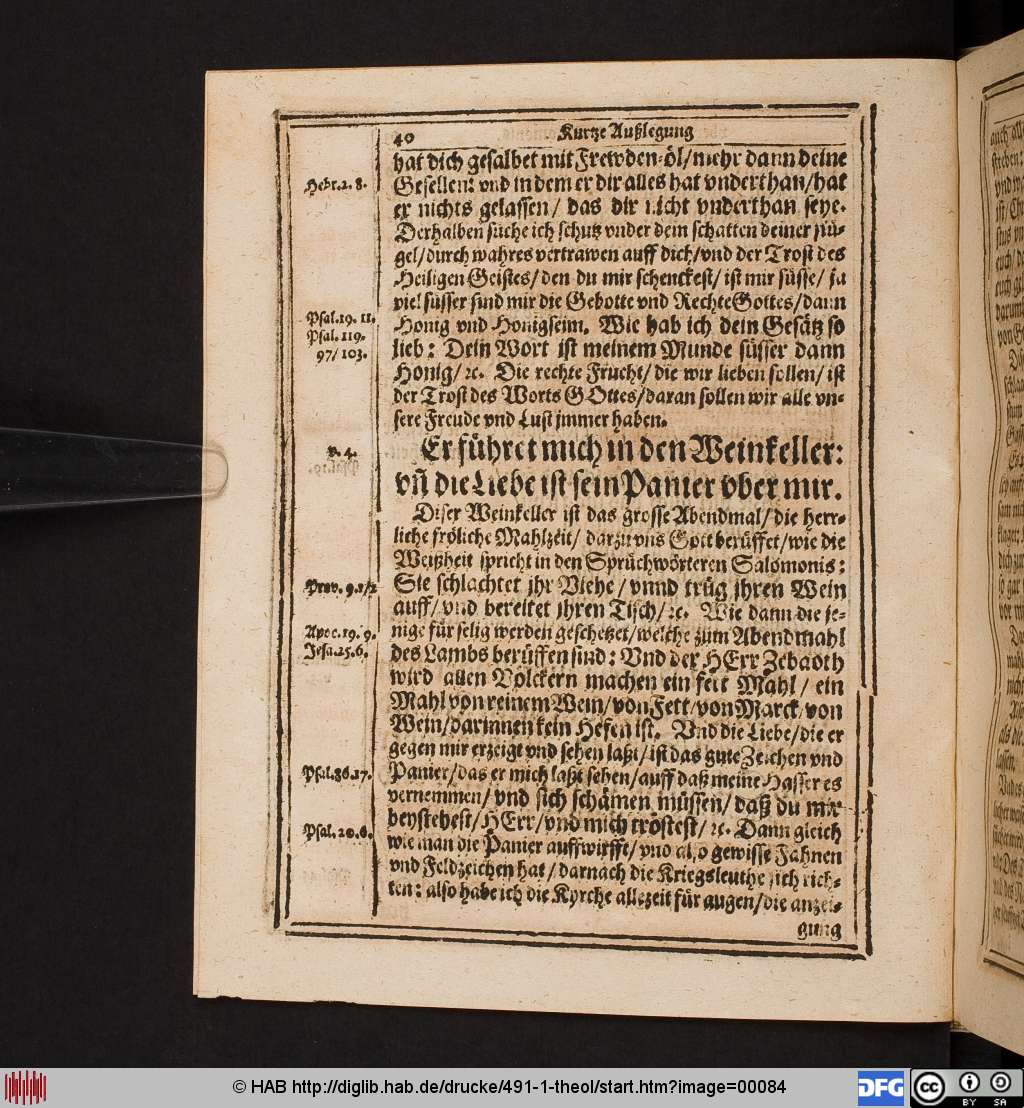 40 Kurtze Außlegung
hat dich gesalbet mit Frewden-öl/mehr dann deine
Hebr.2. 8.
Gesellen: vnd in dem er dir alles hat vnderthan/hat
er nichts gelassen/ das dir nicht vnderthan seye.
Derhalben suche ich schutz vnder dem schatten deiner flü-
gel/durch wahres vertrawen auff dich/vnd der Trost des
Heiligen Geistes/den du mir schenckest/ ist mir süsse/ ja
viel süsser sind mir die Gebotte vnd Rechte Gottes/dann
Psal.19. 11.
Honig vnd Honigseim. Wie hab ich dein Gesätz so
Psal. 119.
lieb: Dein Wort ist meinem Munde süsser dann
97/ 103.
Honig/ ꝛc. Die rechte Frucht/ die wir lieben sollen/ ist
der Trost des Worts GOttes/daran sollen wir alle vn-
sere Freude vnd Lust jmmer haben.
v. 4.
Er führet mich in den Weinkeller:
vñ die Liebe ist sein Panier vber mir.
Diser Weinkeller ist das grosse Abendmal/ die herr-
liche fröliche Mahlzeit/ darzu vns Gott berüffet/wie die
Weißheit spricht in den Sprüchwörteren Salomonis:
Prov. 9.1/2
Sie schlachtet jhr Viehe/ vnnd trüg jhren Wein
auff/ vnd bereitet jhren Tisch/ ꝛc. Wie dann die je-
Apoc. 19. 9.
nige für selig werden geschetzet/welche zum Abendmahl
Jesa.25.6.
des Lambs berüffen sind: Vnd der HErr Zebaoth
wird allen Völckern machen ein fett Mahl/ ein
Mahl von reinem Wein/ von Fett/ von Marck/ von
Wein/darinnen kein Hefen ist. Vnd die Liebe/die er
gegen mir erzeigt vnd sehen laßt/ist das gute Zeichen vnd
Psal.86.17.
Panier/das er mich laßt sehen/auff daß meine Hasser es
vernemmen/ vnd sich schämen müssen/ daß du mir
Psal.20.6.
beystehest/HErr/vnd mich tröstest/ ꝛc. Dann gleich
wie man die Panier auffwirfft/ vnd also gewisse Fahnen
vnd Feldzeichen hat/ darnach die Kriegsleuthe sich rich-
ten: also habe ich die Kyrche allezeit für augen/die anzei-
gung
© HAB http://diglib.hab.de/drucke/491-1-theol/start.htm?image=00084
DFG
cc
BY SA